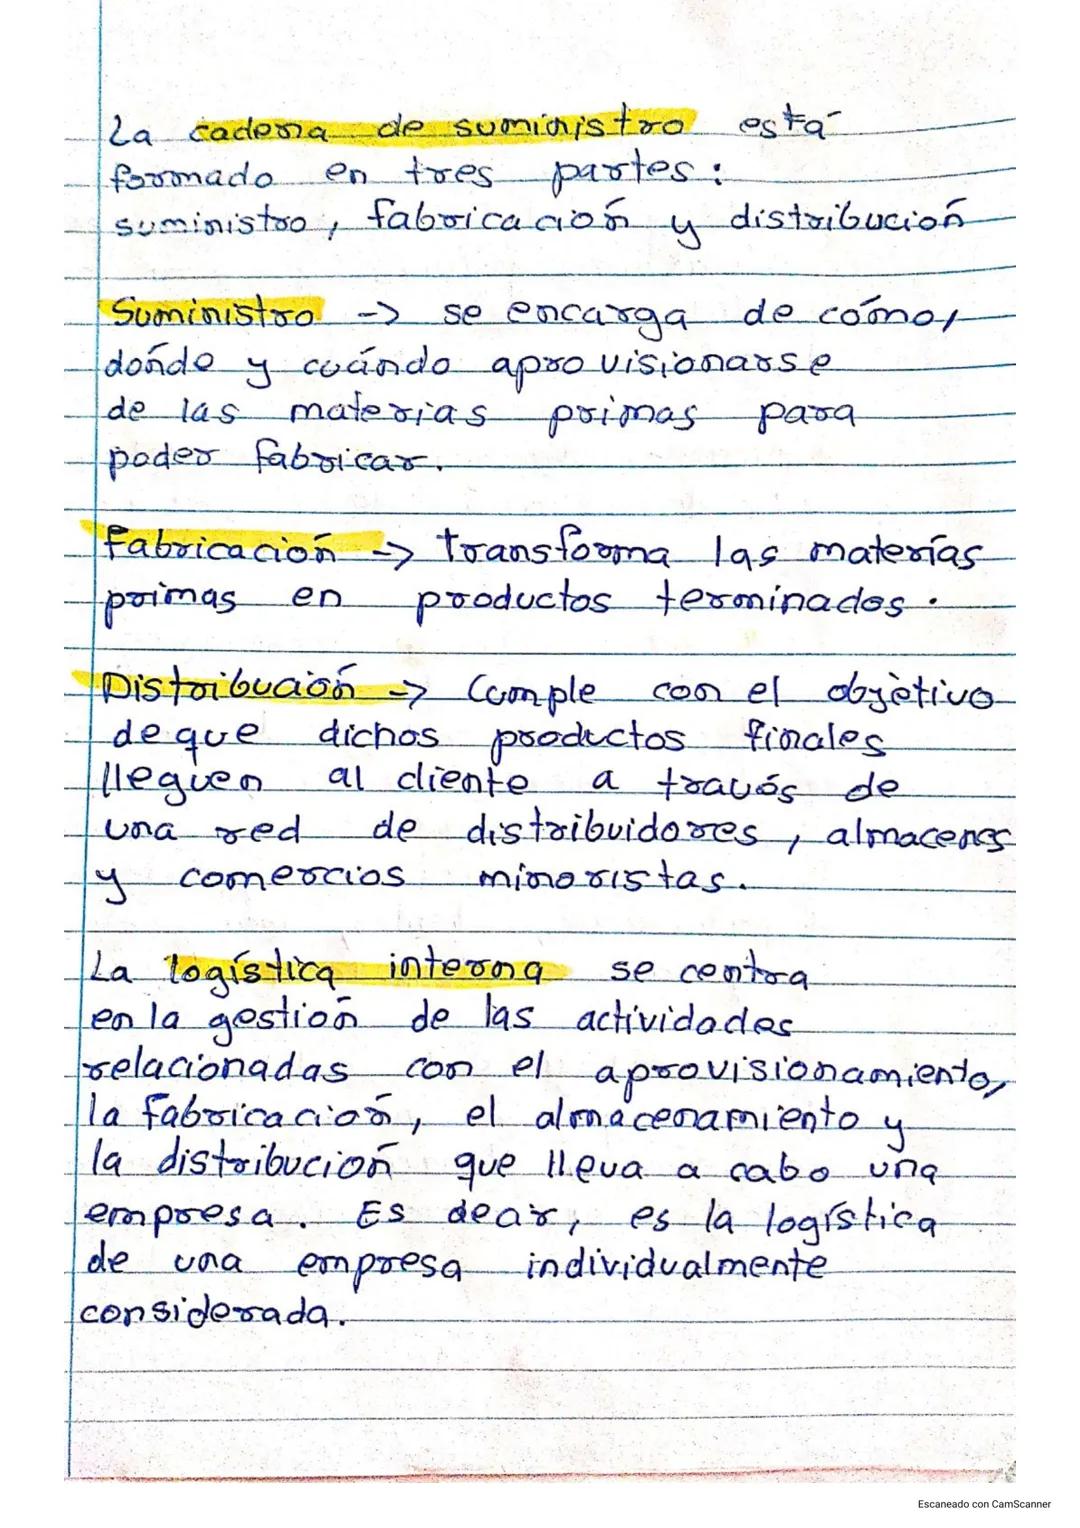 La cadena de suministro está
formado en tres partes:
suministro, fabricación y distribución
Suministro -> se encarga de cómo,
dónde y cuándo aprovisionarse
de las materias primas para
poder fabricar.
Fabricación -> transforma las materías
primas en productos terminados.
Distribución -> Cumple con el objetivo
de que dichos productos finales
lleguen al cliente a través de
una red de distribuidores, almacenes
y comercios minoristas.
La logística interna se centra
en la gestión de las actividades
relacionadas con el aprovisionamiento,
la fabricación, el almacenamiento y
la distribución que lleva a cabo una
empresa. Es decir, es la logística
de una empresa individualmente
considerada.
Escaneado con CamScanner